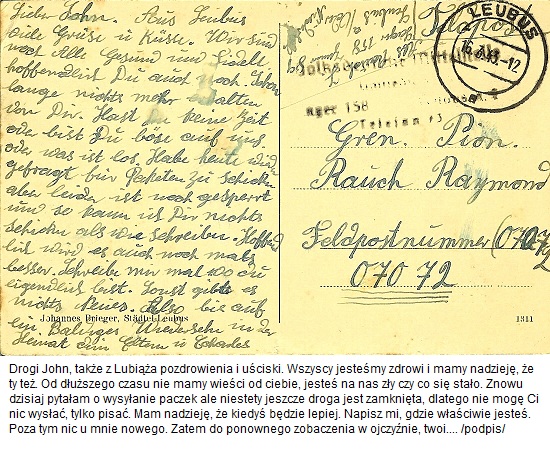 Lieber John. Aus Leubus
viele Grüße u Küsse. Wir sind
noch Alle Gesund und Fidell
hoffendlich Du auch noch. Schon
lange nichts mehr erhalten
von Dir. Hast Du keine Zeit
oder bist Du böse auf uns
oder was ist los. Habe heute wieder
gefragt für Paketen zu schicken
aber leider ist noch gesperrt
und so kann ich Dir nichts
schicken als wie schreiben. Hoffend
lich wird es auch noch mals
besser. Schreibe mir mal wo du
eigendlich bist. Sonst gibts
nichts Neues. Also bis auf
ein Wiedersehn in der
Heimat dein Eltern u
Johannes Brieger, Städtel-Leubus
Feldpost
LEUBUS
Lager 158
Telefon 13
Gren. Pion.
Rauch Raymond
Feldpostnummer
07072
1311
Drogi John, także z Lubiąża pozdrowienia i uściski. Wszyscy jesteśmy zdrowi i mamy nadzieję, że
ty też. Od dłuższego czasu nie mamy wieści od ciebie, jesteś na nas zły czy co się stało. Znowu
dzisiaj pytałam o wysyłanie paczek ale niestety jeszcze droga jest zamknięta, dlatego nie mogę Ci
nic wysłać, tylko pisać. Mam nadzieję, że kiedyś będzie lepiej. Napisz mi, gdzie właściwie jesteś.
Poza tym nic u mnie nowego. Zatem do ponownego zobaczenia w ojczyźnie, twoi.... /podpis/